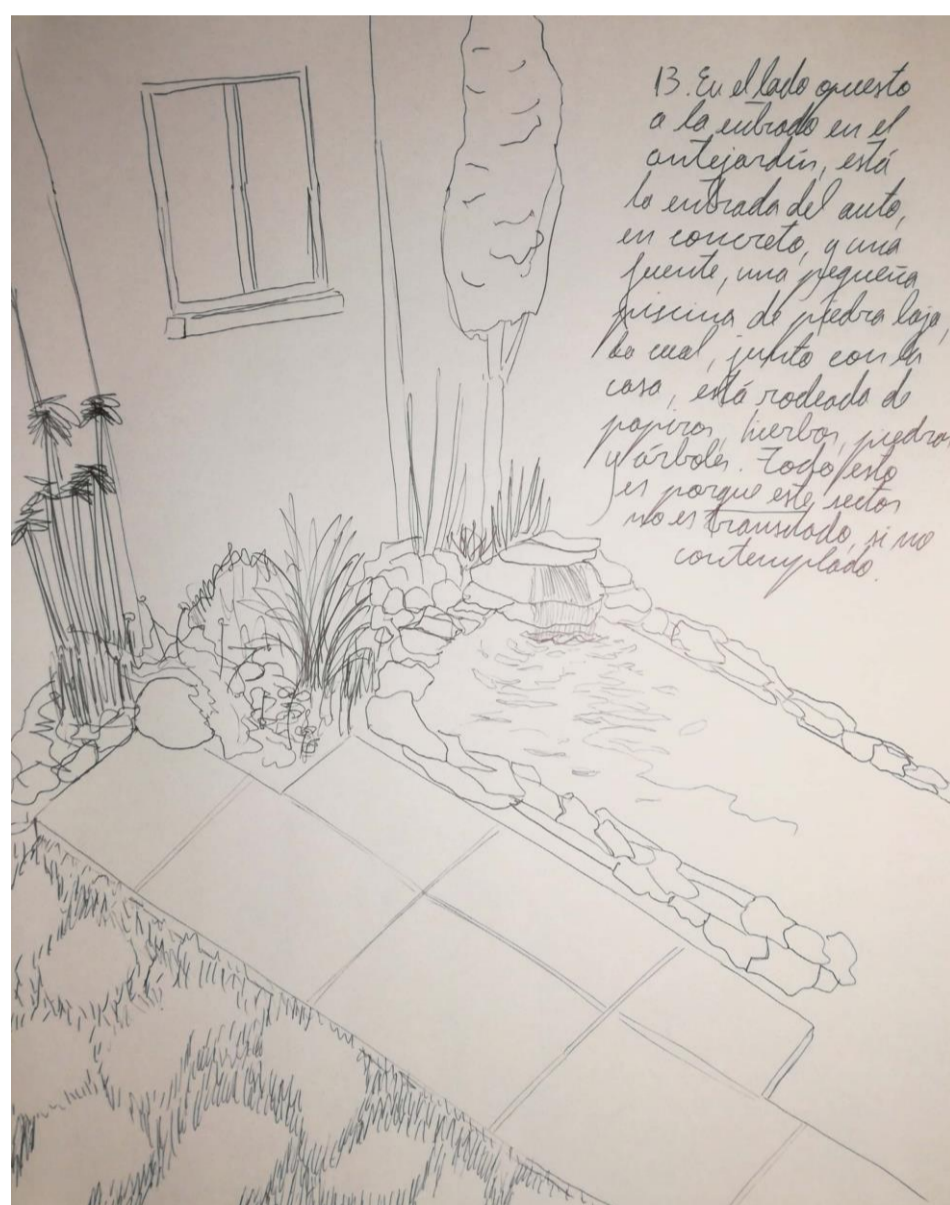 13. En el lado opuesto
a la entrada en el
antejardín, está
la entrada del auto,
en concreto, y una
fuente, una pequeña
piscina de piedra laja,
la cual, junto con la
casa, está rodeada de
papiros, hierbas, piedras
y árboles. Todo esto
es porque este sector
no es transitado, si no
contemplado.